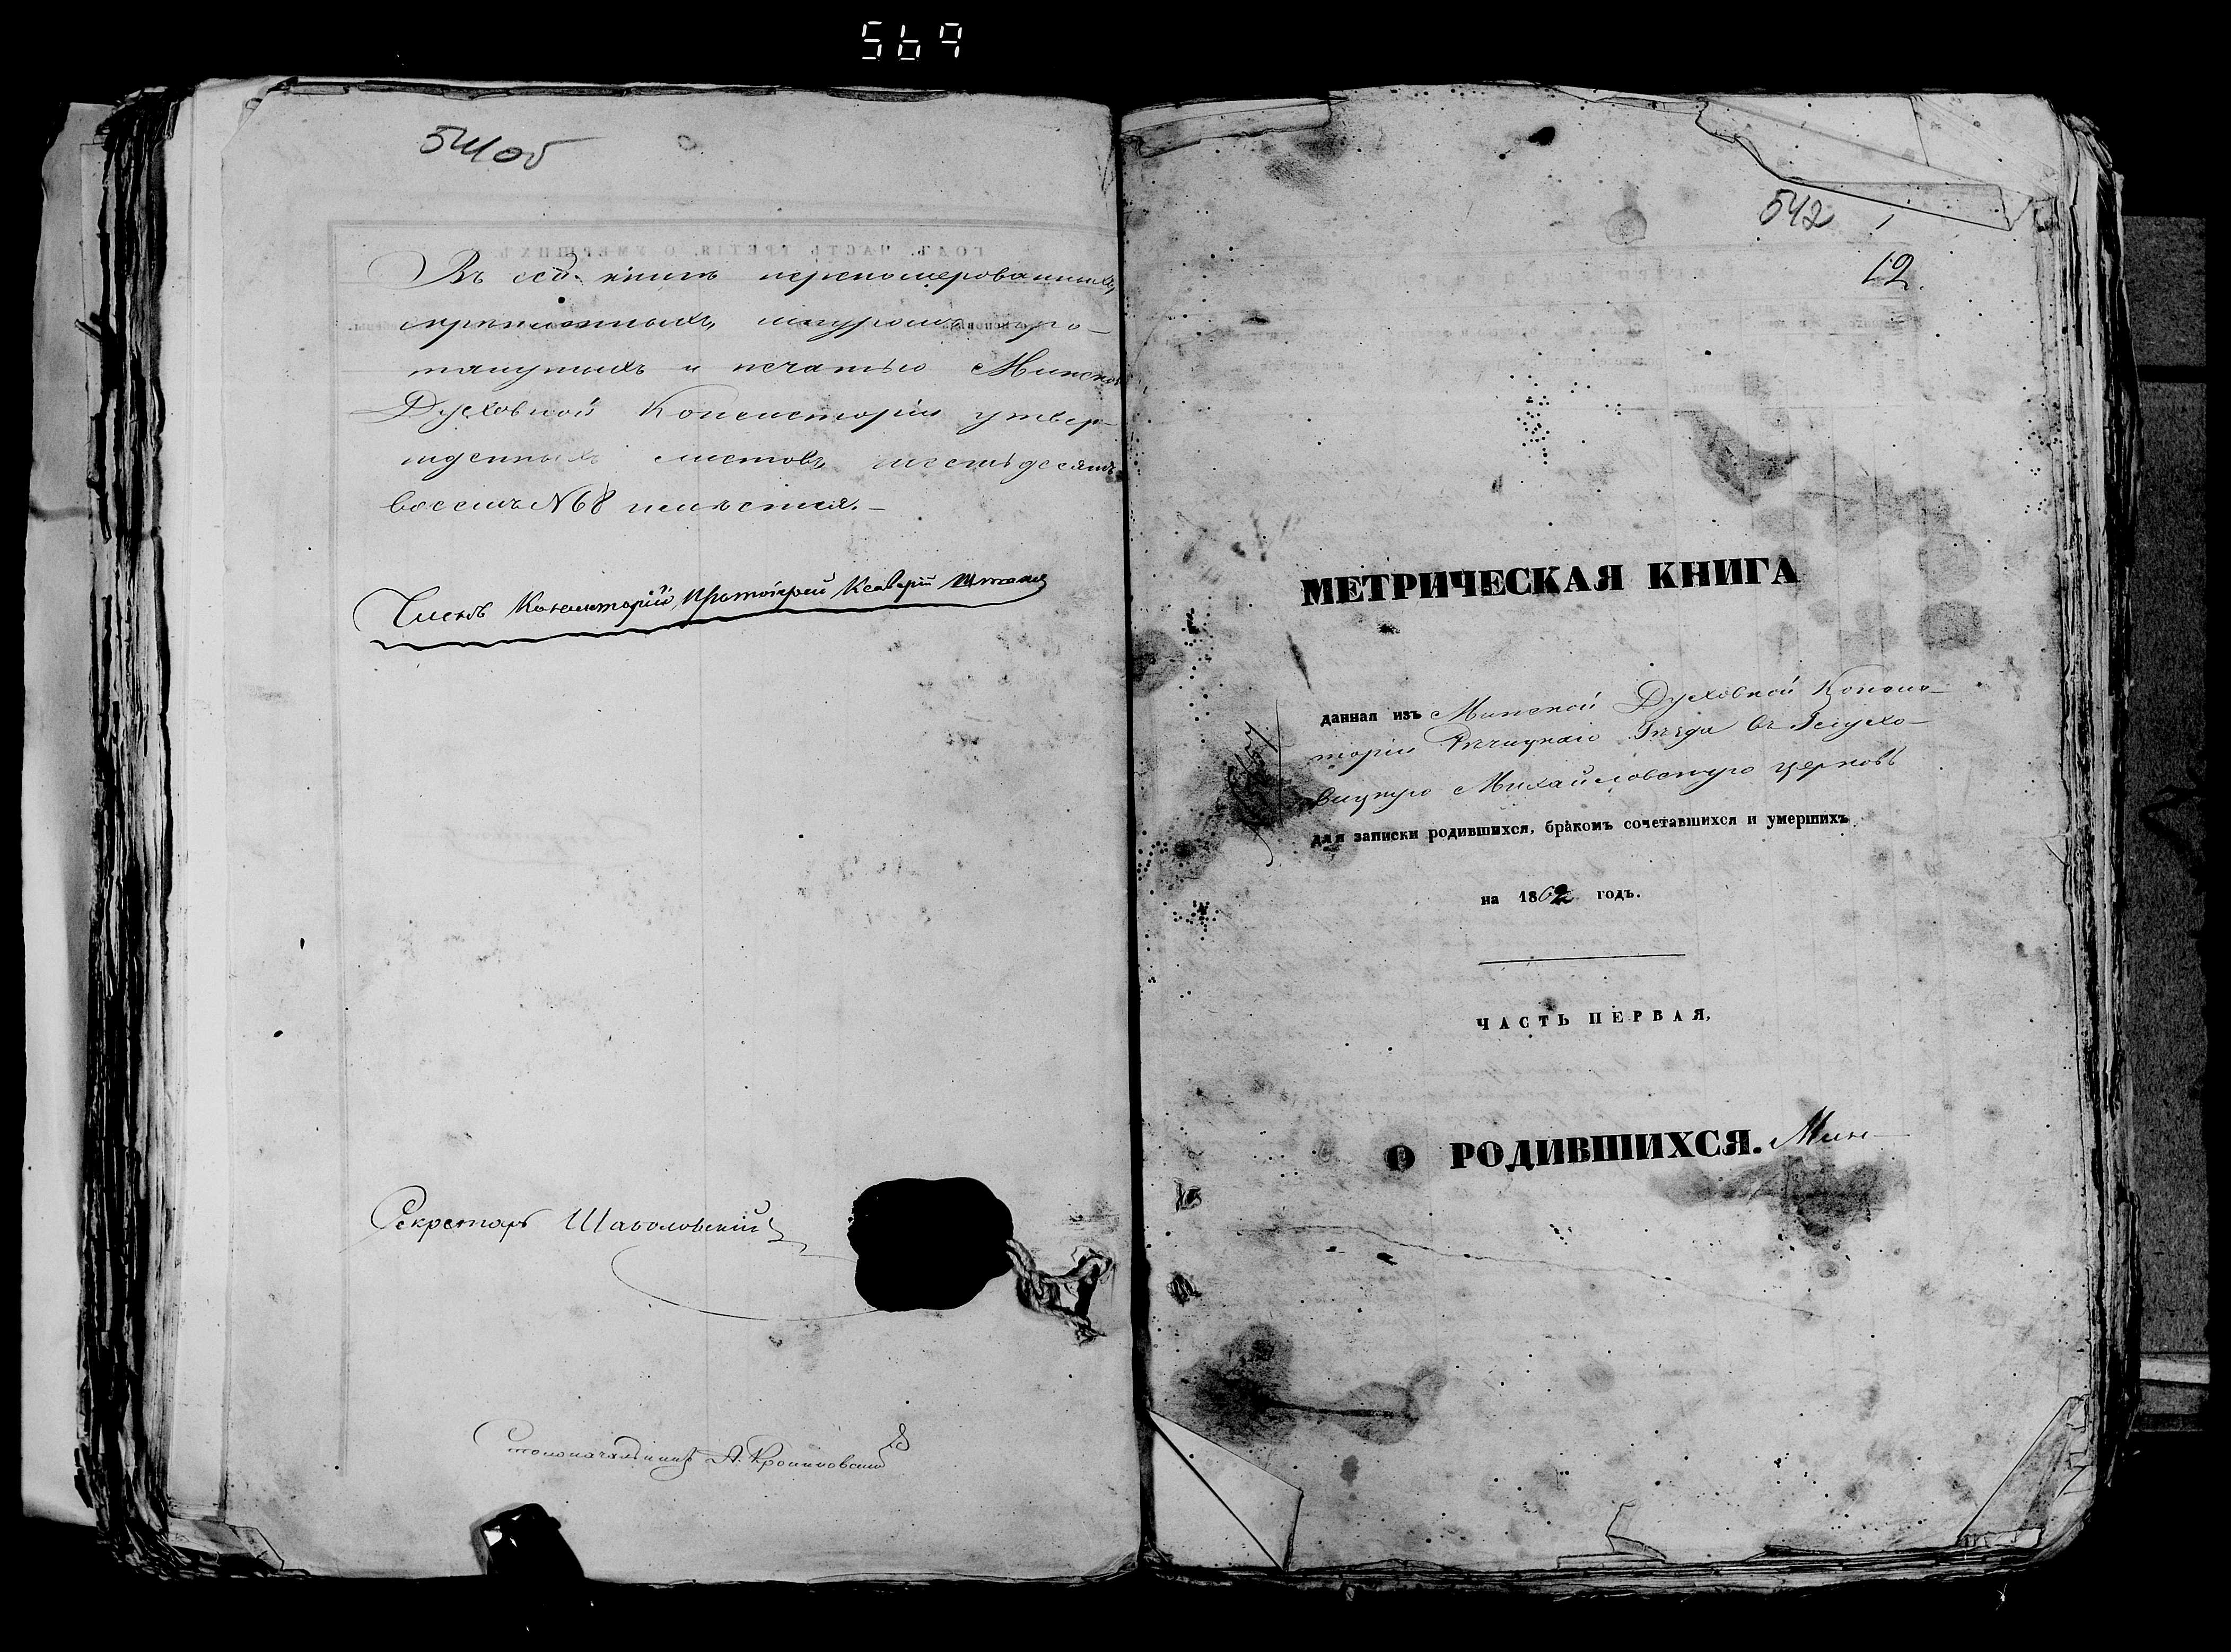 569
541об
Въ сей книгѣ перенумерованныхъ,
скрѣпленныхъ, шнуромъ про-
тянутыхъ и печатью Минской
Духовной Консисторіи утвер-
жденныхъ листовъ шестьдесятъ
восемь N 68 имѣется.
Членъ Консисторіи, Протоіерей Ксаверій
Секретарь Шаболовскій
Столоначальникъ А.
542
12.
МЕТРИЧЕСКАЯ КНИГА
данная изъ Минской Духовной Консис-
торіи Рѣчицкаго Уѣзда въ Глухо-
вицкую Михайловскую церковь
для записки родившихся, бракомъ сочетавшихся и умершихъ
на 1862 годъ.
ЧАСТЬ ПЕРВАЯ,
О РОДИВШИХСЯ. Мин